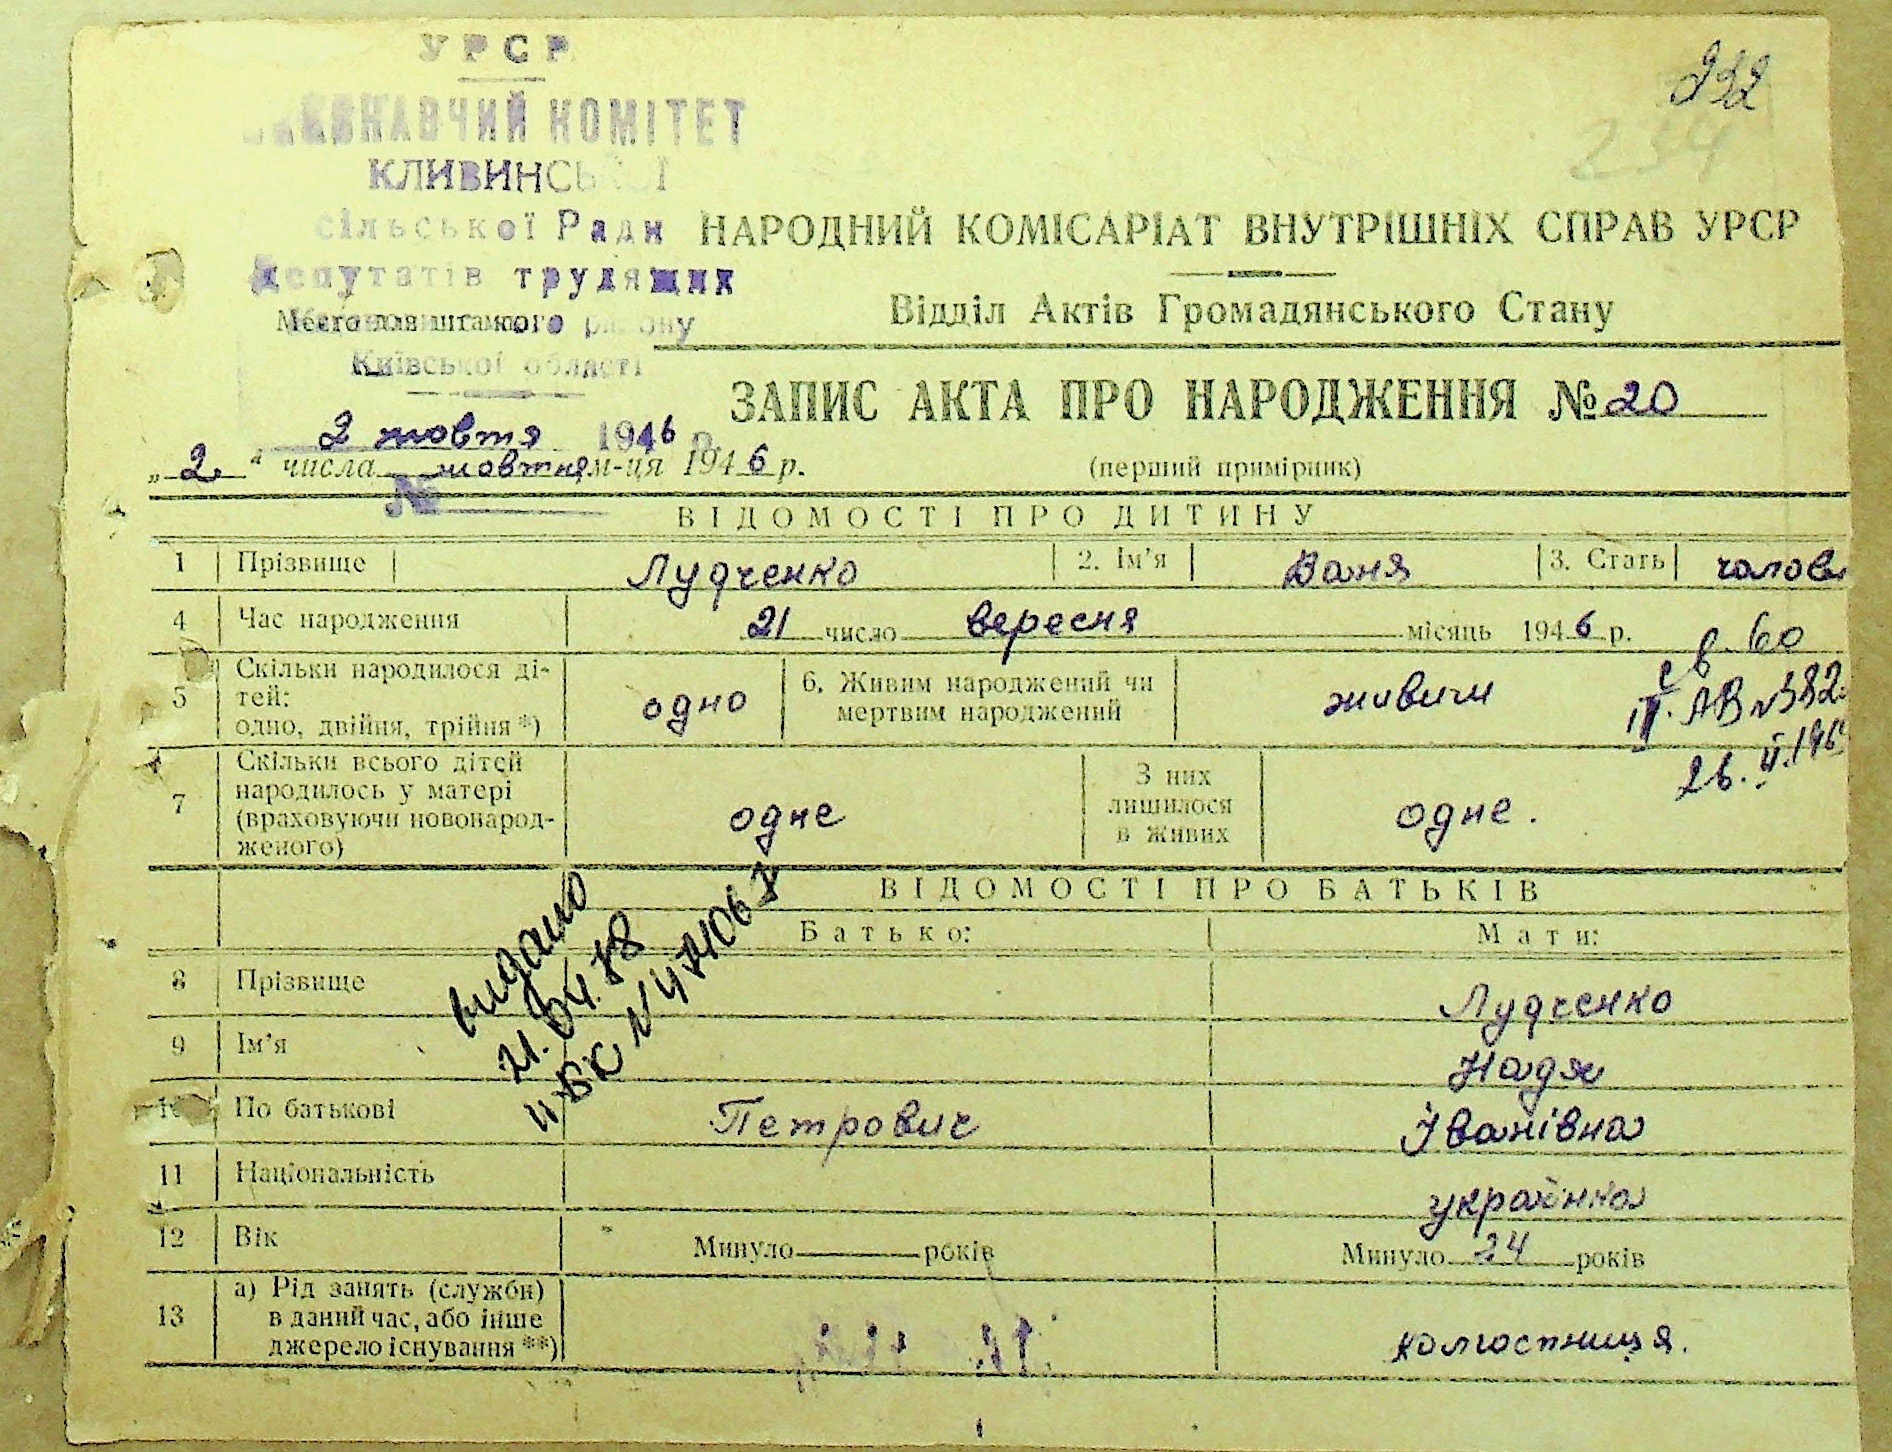 УРСР
ВИКОНАВЧИЙ КОМІТЕТ
КЛИВИНСЬКОЇ
сільської Ради
депутатів трудящих
Место для штампа району
Київської області
2 жовтня 1946 р.
№
232
234
НАРОДНИЙ КОМІСАРІАТ ВНУТРІШНІХ СПРАВ УРСР
Відділ Актів Громадянського Стану
ЗАПИС АКТА ПРО НАРОДЖЕННЯ № 20
„2“ числа жовтня м-ця 1946 р. (перший примірник)
ВІДОМОСТІ ПРО ДИТИНУ
1 Прізвище Лудченко 2. Ім'я Ваня 3. Стать чолов
4 Час народження 21 число вересня місяць 1946 р.
5 Скільки народилося ді-
тей:
одно, двійня, трійня *)
одно
6. Живим народжений чи
мертвим народжений
живим
7 Скільки всього дітей
народилось у матері
(враховуючи новонарод-
женого)
одне
З них
лишилося
в живих
одне.
ВІДОМОСТІ ПРО БАТЬКІВ
Батько: Мати:
видано
21.04.78
8 Прізвище Лудченко
9 Ім'я Надя
10 По батькові Петрович Іванівна
11 Національність українка
12 Вік Минуло років Минуло 24 років
13 а) Рід занять (служби)
в даний час, або інше
джерело існування **)
колгоспниця.